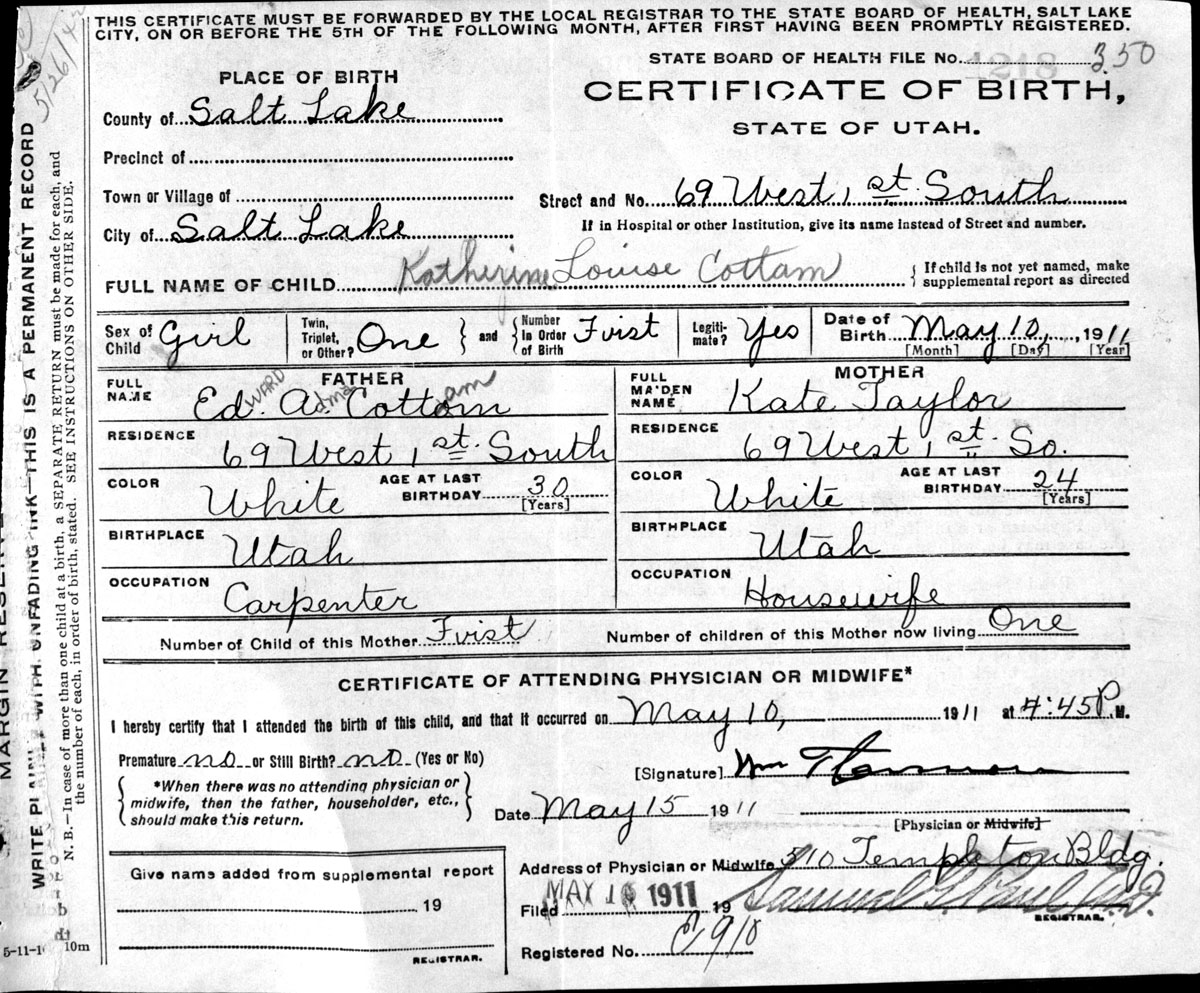 THIS CERTIFICATE MUST BE FORWARDED BY THE LOCAL REGISTRAR TO THE STATE BOARD OF HEALTH, SALT LAKE
CITY, ON OR BEFORE THE 5TH OF THE FOLLOWING MONTH, AFTER FIRST HAVING BEEN PROMPTLY REGISTERED.
STATE BOARD OF HEALTH FILE No. 350
PLACE OF BIRTH
CERTIFICATE OF BIRTH,
STATE OF UTAH.
County of Salt Lake
Precinct of
Town or Village of
Street and No. 69 West 1st. South
City of Salt Lake
If in Hospital or other Institution, give its name Instead of Street and number.
FULL NAME OF CHILD Katherine Louise Cottam
If child is not yet named, make
supplemental report as directed
Sex of Child Girl
Twin, Triplet, or Other? One
and
Number In Order of Birth First
Legiti-mate? Yes
Date of Birth May 10, 1911
[Month] [Day] [Year]
FATHER
FULL NAME Edward Adam Cottam
RESIDENCE 69 West 1st. South
COLOR White
AGE AT LAST BIRTHDAY 30
[Years]
BIRTHPLACE Utah
OCCUPATION Carpenter
MOTHER
FULL MAIDEN NAME Kate Taylor
RESIDENCE 69 West 1st. So.
COLOR White
AGE AT LAST BIRTHDAY 24
[Years]
BIRTHPLACE Utah
OCCUPATION Housewife
Number of Child of this Mother First
Number of children of this Mother now living One
CERTIFICATE OF ATTENDING PHYSICIAN OR MIDWIFE*
I hereby certify that I attended the birth of this child, and that it occurred on May 10, 1911 at 4:45 P.M.
Premature no or Still Birth? no (Yes or No)
[Signature] Wm
*When there was no attending physician or
midwife, then the father, householder, etc.,
should make this return.
Date May 15 1911
[Physician or Midwife]
Address of Physician or Midwife 510 Templeton Bldg.
Give name added from supplemental report
19
REGISTRAR.
Filed MAY 16 1911 19 Samuel G. Paul M.D.
REGISTRAR.
Registered No. 910
5-11-1 10m
WRITE PLAINLY WITH UNFADING INK—THIS IS A PERMANENT RECORD
N. B.—In case of more than one child at a birth, a SEPARATE RETURN must be made for each, and
the number of each, in order of birth, stated. SEE INSTRUCTIONS ON OTHER SIDE.
5/26/4